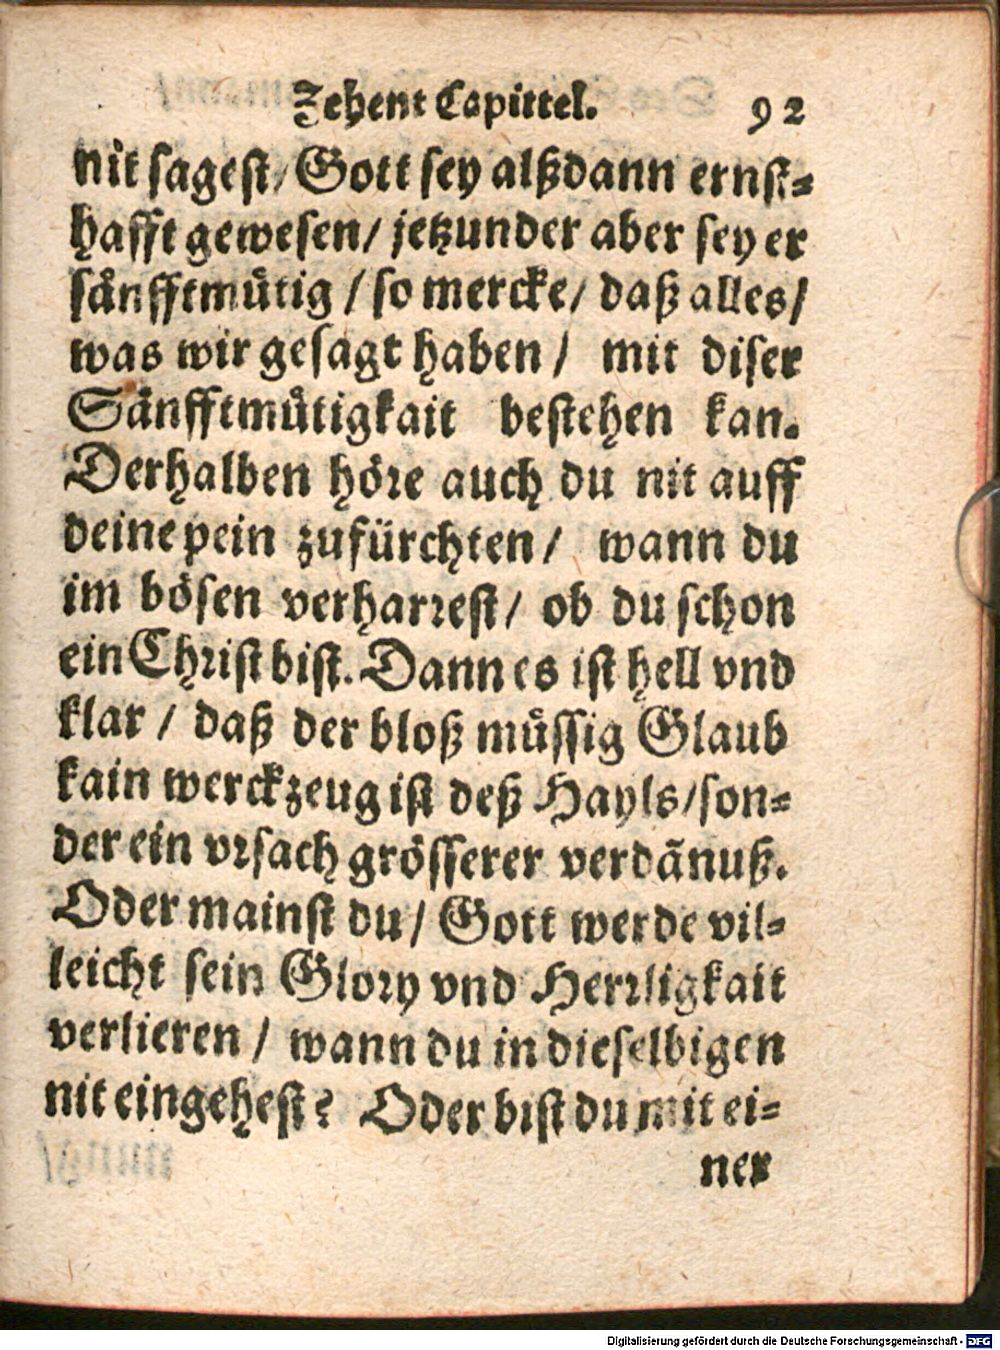 Zehent Capittel. 92
nit sagest / Gott sey alßdann ernst-
hafft gewesen / jetzunder aber sey er
sånfftmütig / so mercke / daß alles /
was wir gesagt haben / mit diser
Sånfftmůtigkait bestehen kan.
Derhalben höre auch du nit auff
deine pein zufürchten / wann du
im bösen verharrest / ob du schon
ein Christ bist. Dann es ist hell vnd
klar / daß der bloß müssig Glaub
kain werckzeug ist deß Hayls / son-
der ein vrsach grösserer verdãnuß.
Oder mainst du / Gott werde vil-
leicht sein Glory vnd Herrligkait
verlieren / wann du in dieselbigen
nit eingehest? Oder bist du mit ei-
ner
Digitalisierung gefördert durch die Deutsche Forschungsgemeinschaft - DFG